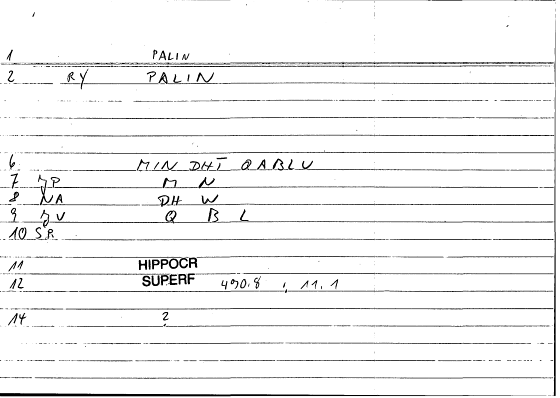 1 PALIN
2 RY PALIN
6 MIN DHI QABLU
7 JP M N
8 NA DH W
9 JV Q B L
10 SR
11 HIPPOCR
12 SUPERF 490.8 , 11.1
14 ?